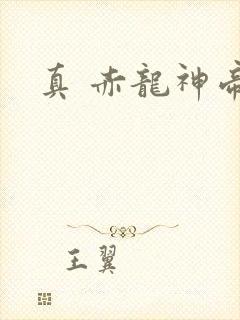 真 赤龍神帝
王翼